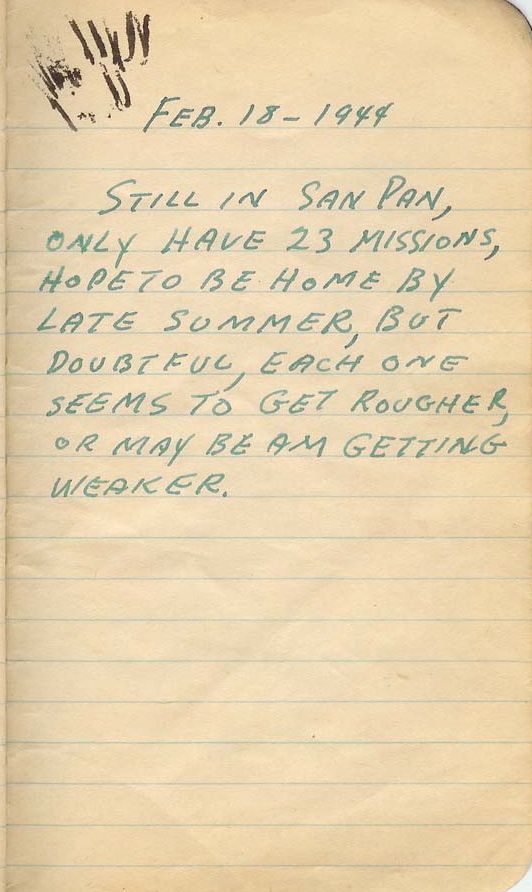 FEB. 18 - 1944
STILL IN SAN PAN,
ONLY HAVE 23 MISSIONS,
HOPE TO BE HOME BY
LATE SUMMER, BUT
DOUBTFUL, EACH ONE
SEEMS TO GET ROUGHER,
OR MAY BE AM GETTING
WEAKER.